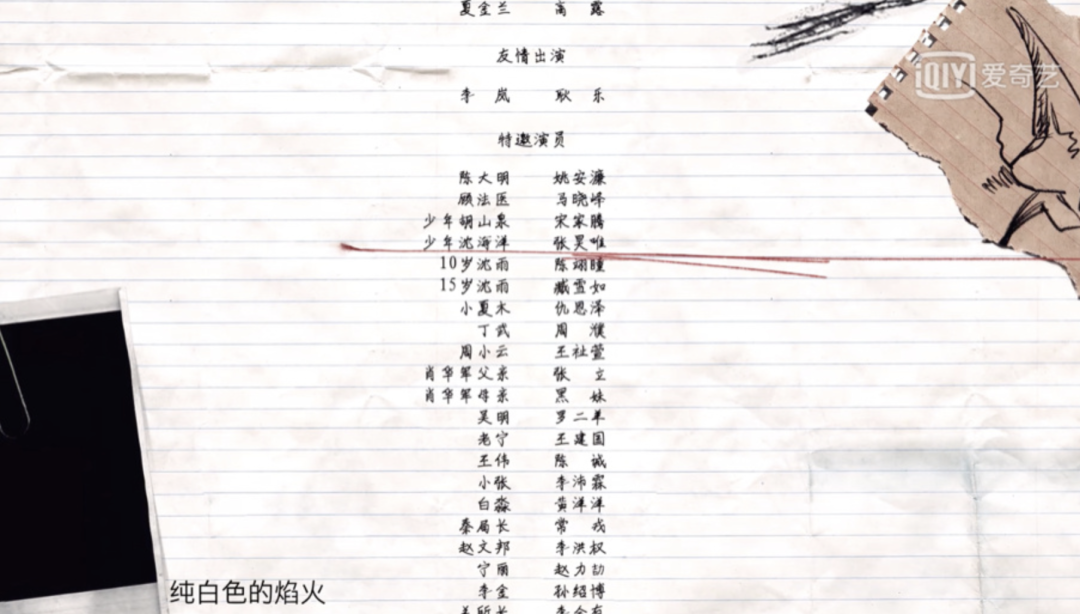 夏金兰 高 露
iQIYI 爱奇艺
友情出演
李 岚 耿 乐
特邀演员
陈大明 姚安濂
顾法医 马晓峰
少年胡山泉 宋家腾
少年沈海洋 张昊唯
10岁沈雨 陈翊曈
15岁沈雨 臧雪如
小夏木 仇恩泽
丁武 周 濮
周小云 王祉萱
肖华军父亲 张 立
肖华军母亲 黑 妹
吴明 罗二羊
老宁 王建国
王伟 陈 诚
小张 李沛霖
白淼 黄洋洋
秦局长 常 戎
赵文邦 李洪权
宁丽 赵力劼
李金 孙绍博
纯白色的焰火